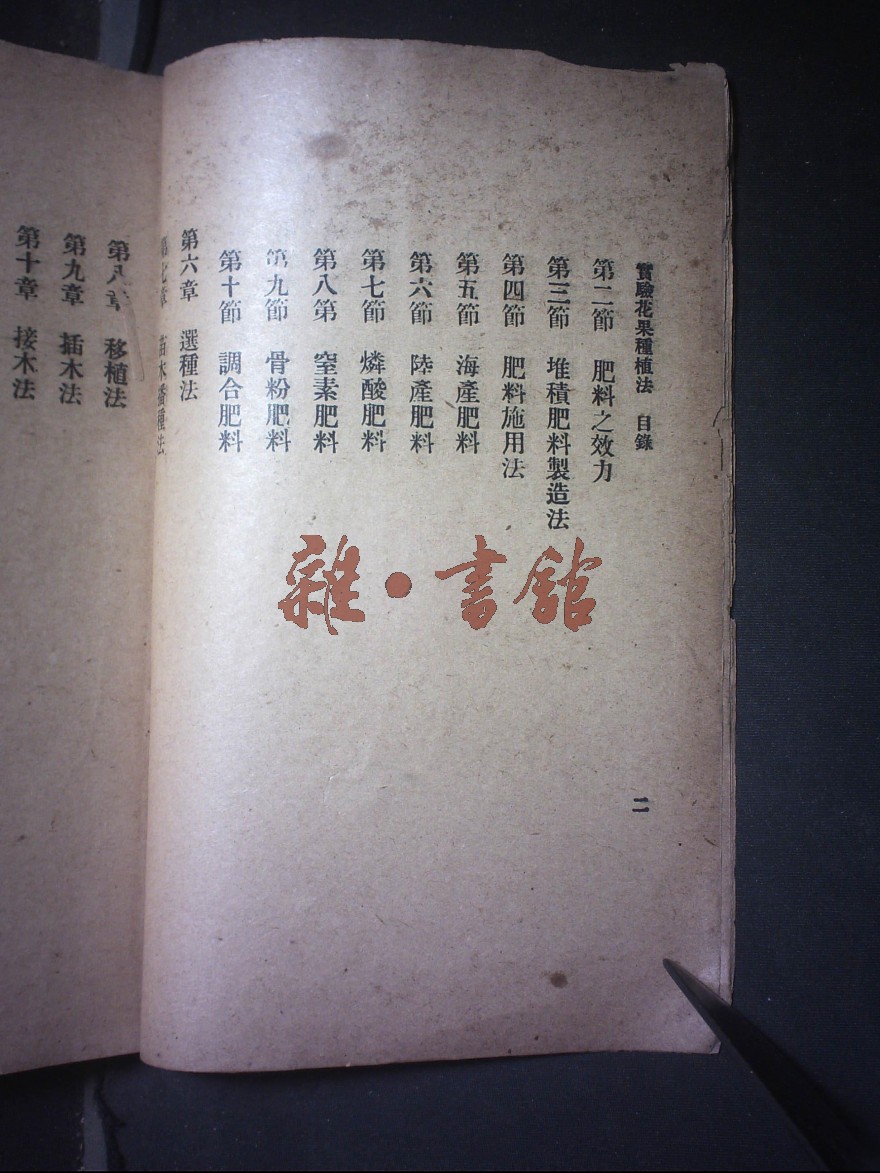 實驗花果種植法 目錄
二
第二節 肥料之效力
第三節 堆積肥料製造法
第四節 肥料施用法
第五節 海產肥料
第六節 陸產肥料
第七節 燐酸肥料
第八第 窒素肥料
第九節 骨粉肥料
第十節 調合肥料
第六章 選種法
第七章 苗木播種法
第八章 移植法
第九章 插木法
第十章 接木法
雜·書館